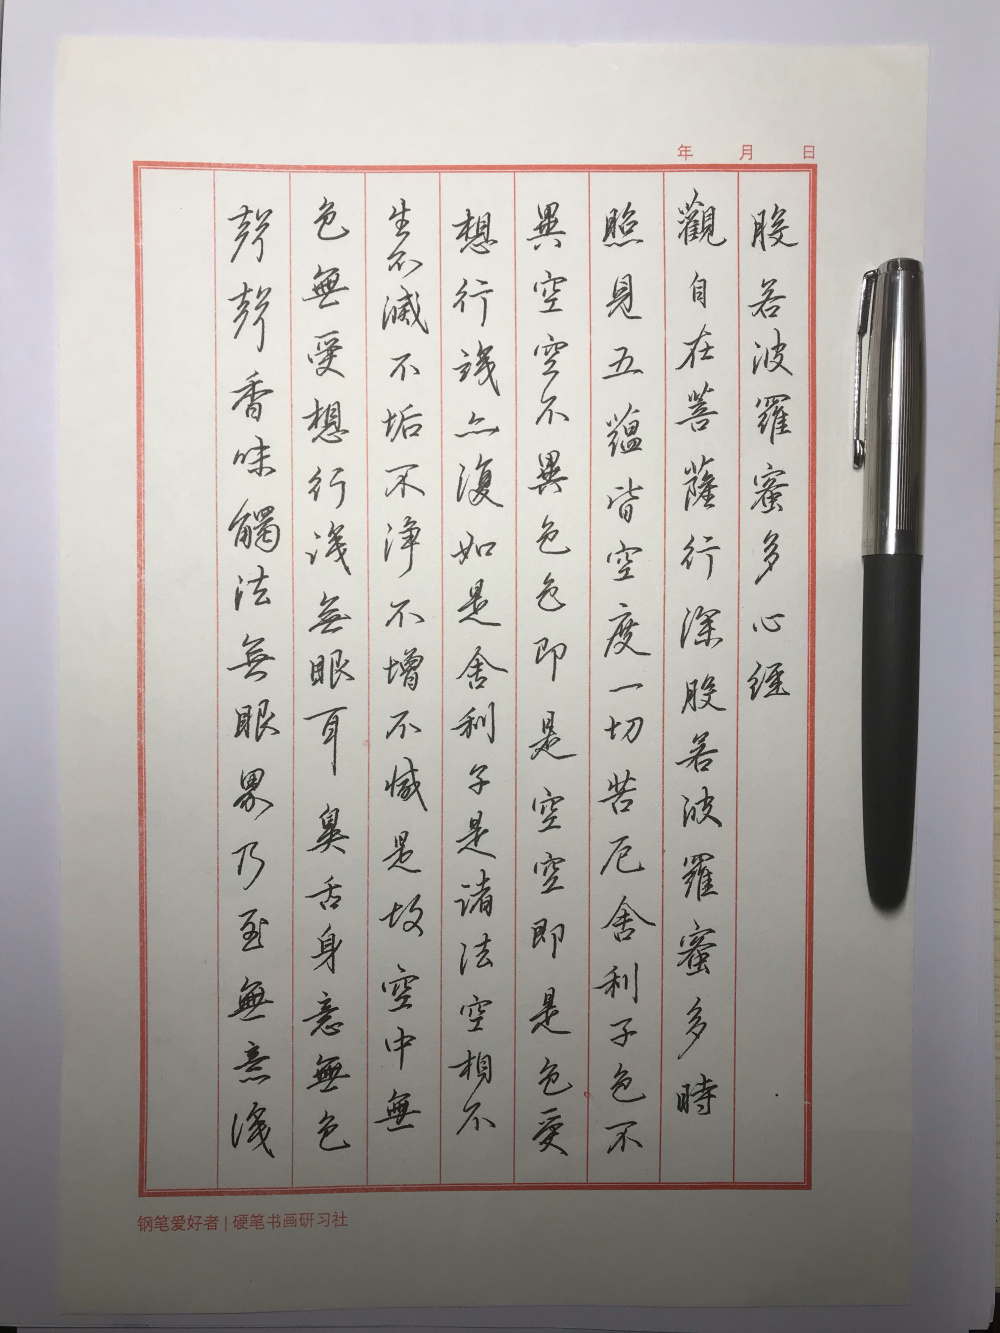 年 月 日
般若波羅蜜多心經
觀自在菩薩行深般若波羅蜜多時
照見五蘊皆空度一切苦厄舍利子色不
異空空不異色色即是空空即是色受
想行識亦復如是舍利子是諸法空相不
生不滅不垢不淨不增不減是故空中無
色無受想行識無眼耳鼻舌身意無色
聲聲香味觸法無眼界乃至無意識
钢笔爱好者 | 硬笔书画研习社